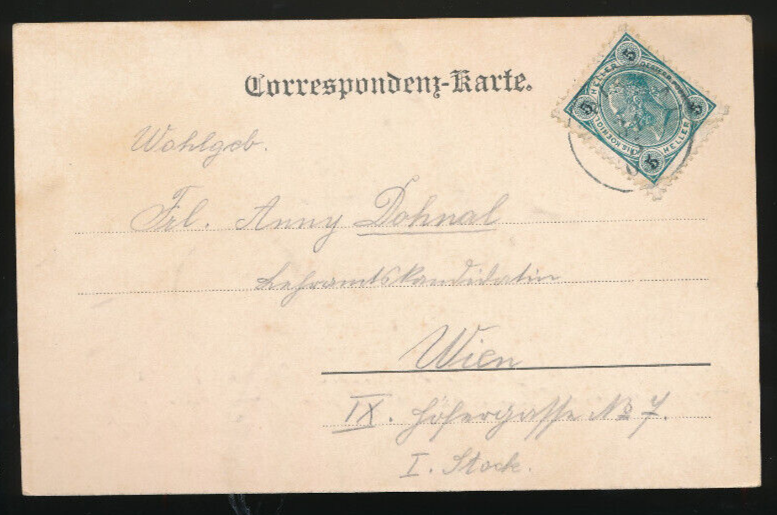 Correspondenz-Karte.
5 HELLER 5 HELLER 5 5
Wohlgeb.
Frl. Anny Dohnal
Lehramtskandidatin
Wien
IX. Höfergasse No 7.
I. Stock.